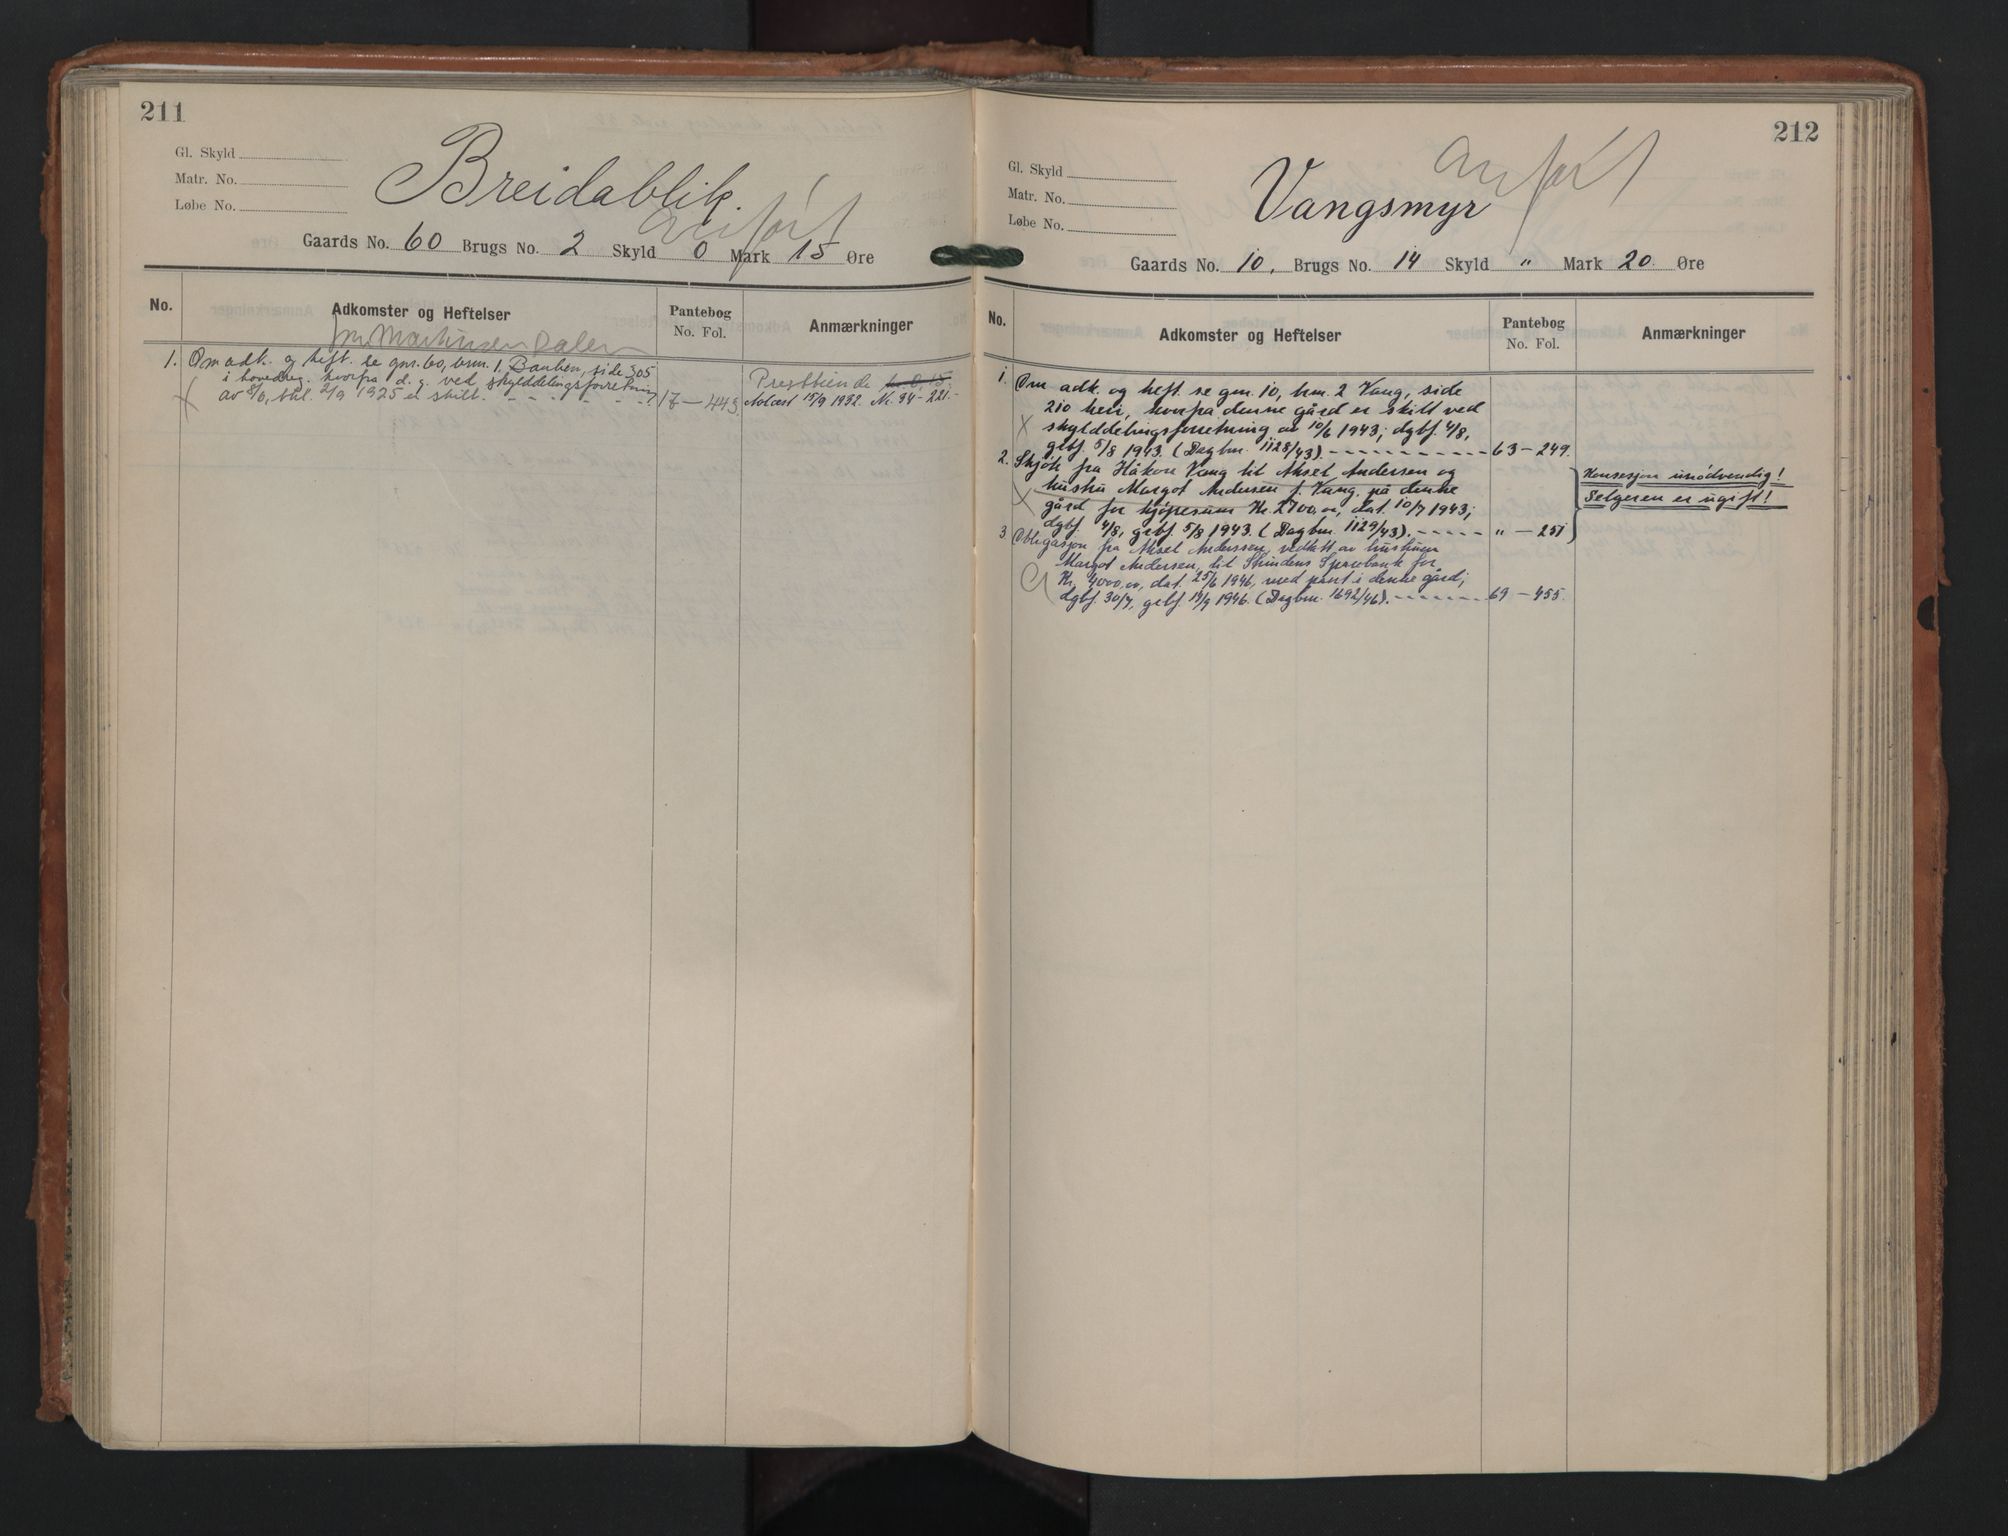 211
Gl. Skyld
Matr. No.
Løbe No.
Breidablik.
Anført
Gaards No. 60 Brugs No. 2 Skyld 0 Mark 15 Øre
No.
Adkomster og Heftelser
Pantebog
No. Fol.
Anmærkninger
Martinsen Dalen
1. Om adk. og heft. se gnr. 60, brnr. 1, side 305
i hovedreg. hvorfra d. g. ved skylddelingsforretning
av 8/6, thl. 2/9 1925 er skilt. - - - - - 17 - 443.
Presttiende kr. 0,15.
Avløst 15/9 1932. Nr. 34 - 221.-
212
Gl. Skyld
Matr. No.
Løbe No.
Vangsmyr
Anført
Gaards No. 10, Brugs No. 14 Skyld " Mark 20 Øre
No.
Adkomster og Heftelser
Pantebog
No. Fol.
Anmærkninger
1. Om adk. og heft. se gnr. 10, brnr. 2 Vang, side
210 heri, hvorfra denne gård er skilt ved
skylddelingsforretning av 10/6 1943; dgbf. 4/8,
grbf. 5/8 1943. (Dagbnr. 1128/43) - - - - - - - - - - 63 - 249.
2. Skjöte fra Håkon Vang til Aksel Andersen og
hustru Margot Andersen f. Vang, på denne
gård for kjöpesum Kr. 2700,00, dat. 10/7 1943;
dgbf. 4/8, grbf. 5/8 1943. (Dagbnr. 1129/43). - - - - - " - 251
Konsesjon unödvendig!
Selgeren er ugift!
3. Obligasjon fra Aksel Anderssen, vedtatt av hustruen
Margot Andersen, til Strindens Sparebank for
Kr. 4000,00, dat. 25/6 1946, med pant i denne gård;
dgbf. 30/7, grbf. 19/9 1946. (Dagbnr. 1692/46). - - - - - - - 69 - 455.